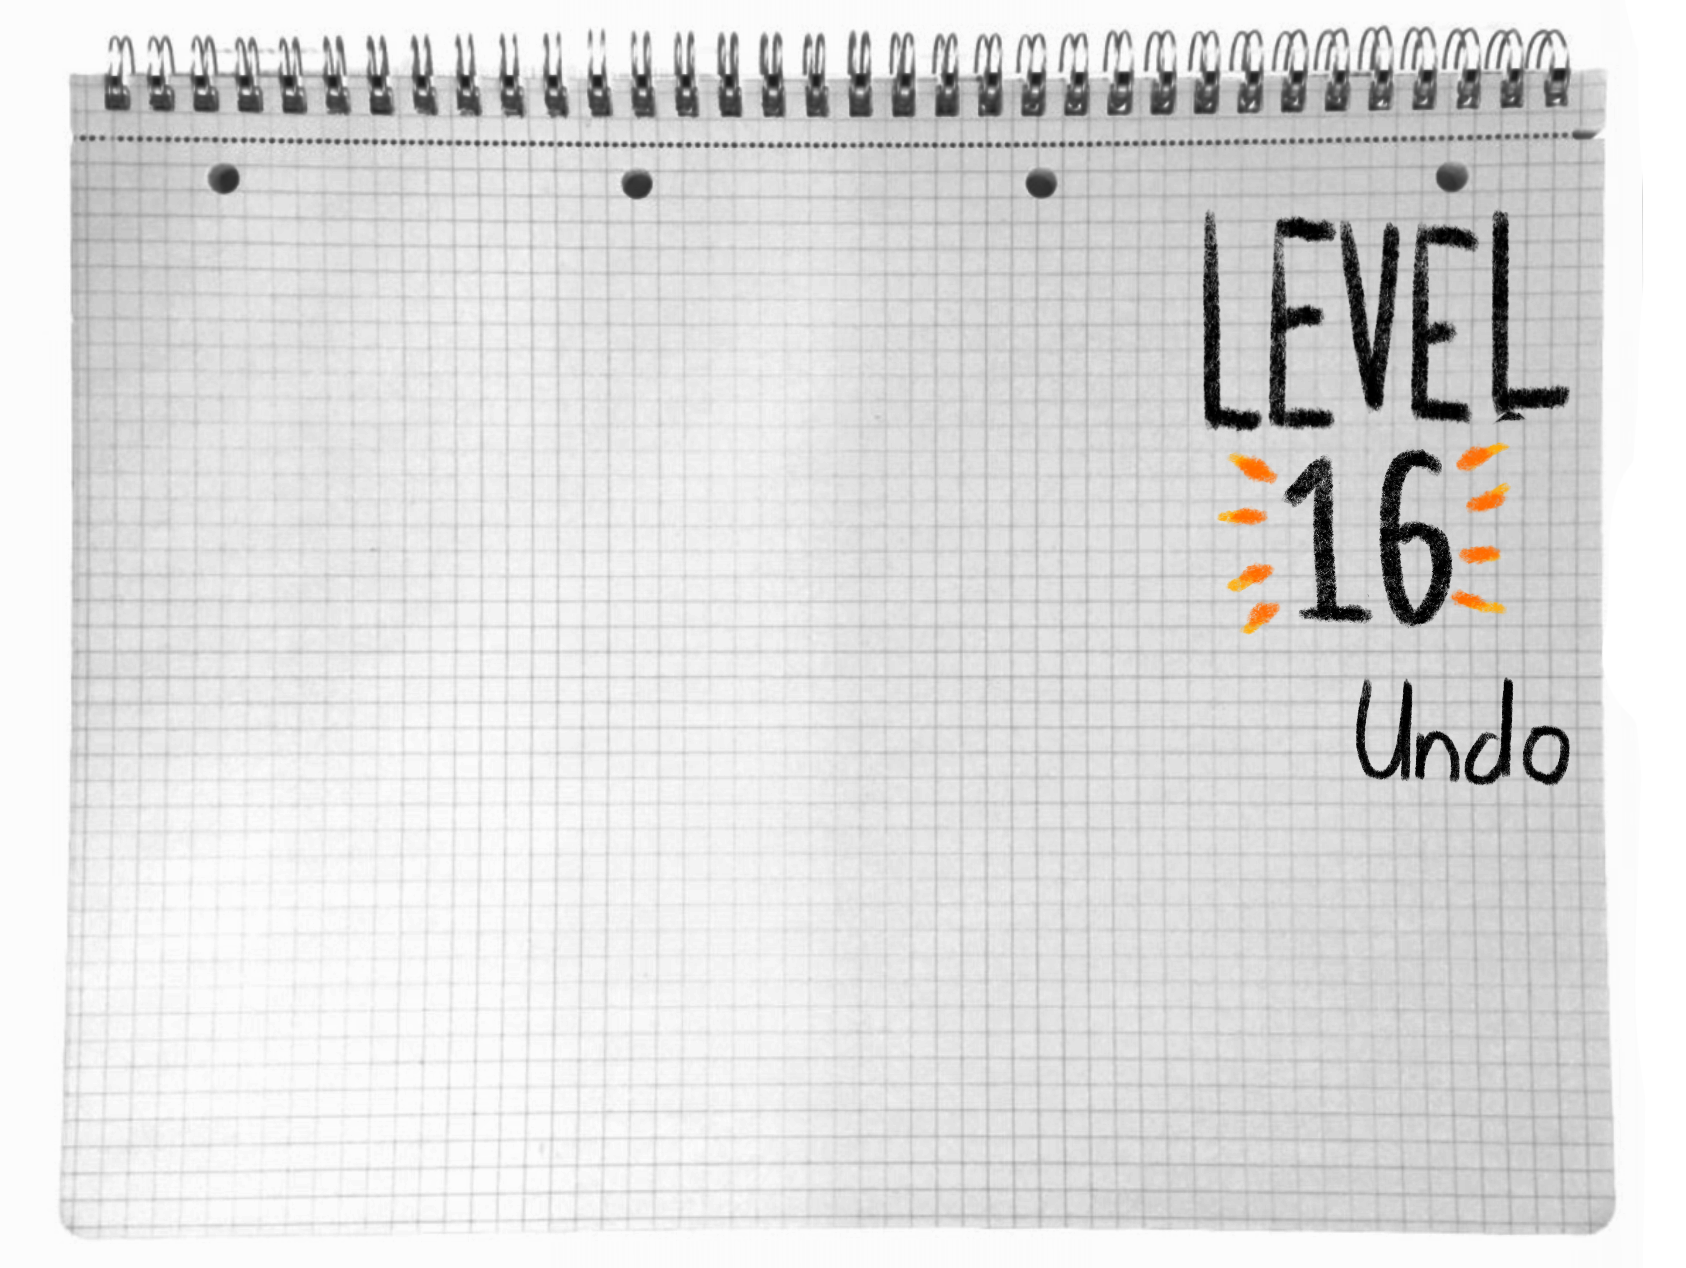 LEVEL
16
Undo